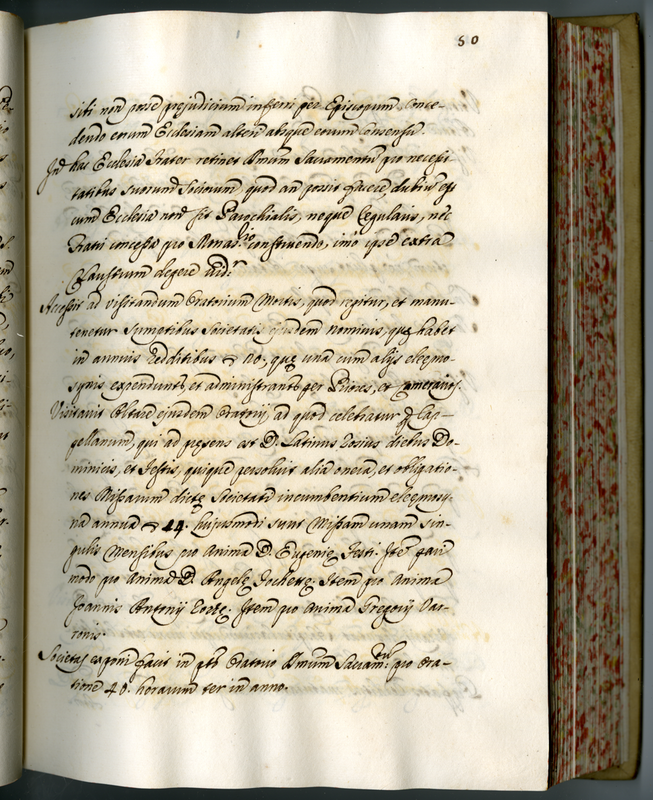 50
sibi non posse prejudicium inferri per Episcopum, conce-
dendo eorum Ecclesiam alteri absque eorum consensu.
In hac Ecclesia Frater retinet Smum Sacramentum pro necessi-
tatibus suorum Sociorum, quod an possit facere, dubium est
cum Ecclesia non sit Parochialis, neque Regularis, nec
Fratri concessa pro Monasrio construendo, imo ipse extra
Claustrum degere vidr
Accessit ad visitandum Oratorium Mortis, quod regitur, et manu-
tenetur sumptibus Societatis ejusdem nominis, quę habet
in annuis redditibus 70, quę una cum alijs eleemo-
synis expenduntr, et administrantr per Priores, et Camerariũ.
Visitavit Altare ejusdem Oratorij, ad quod celebratur per Cap-
pellanum, qui ad presens est D. Latinus Rosius dictus Do-
minicis, et Festis, quique persolvit alia onera, et obligatio-
nes Missarum dictę Societati incumbentium eleemosy-
na annua 24. hujusmodi sunt Missam unam sin-
gulis Mensibus pro anima D. Eugenię Festi. Itē pari
modo pro anima D. Angelę; Item pro anima
Joannis Antonij; Item pro anima Gregorij Var-
ronis.
Societas exponi facit in pto Oratorio Smum Sacramtum pro Ora-
tione 40. horarum ter in anno.